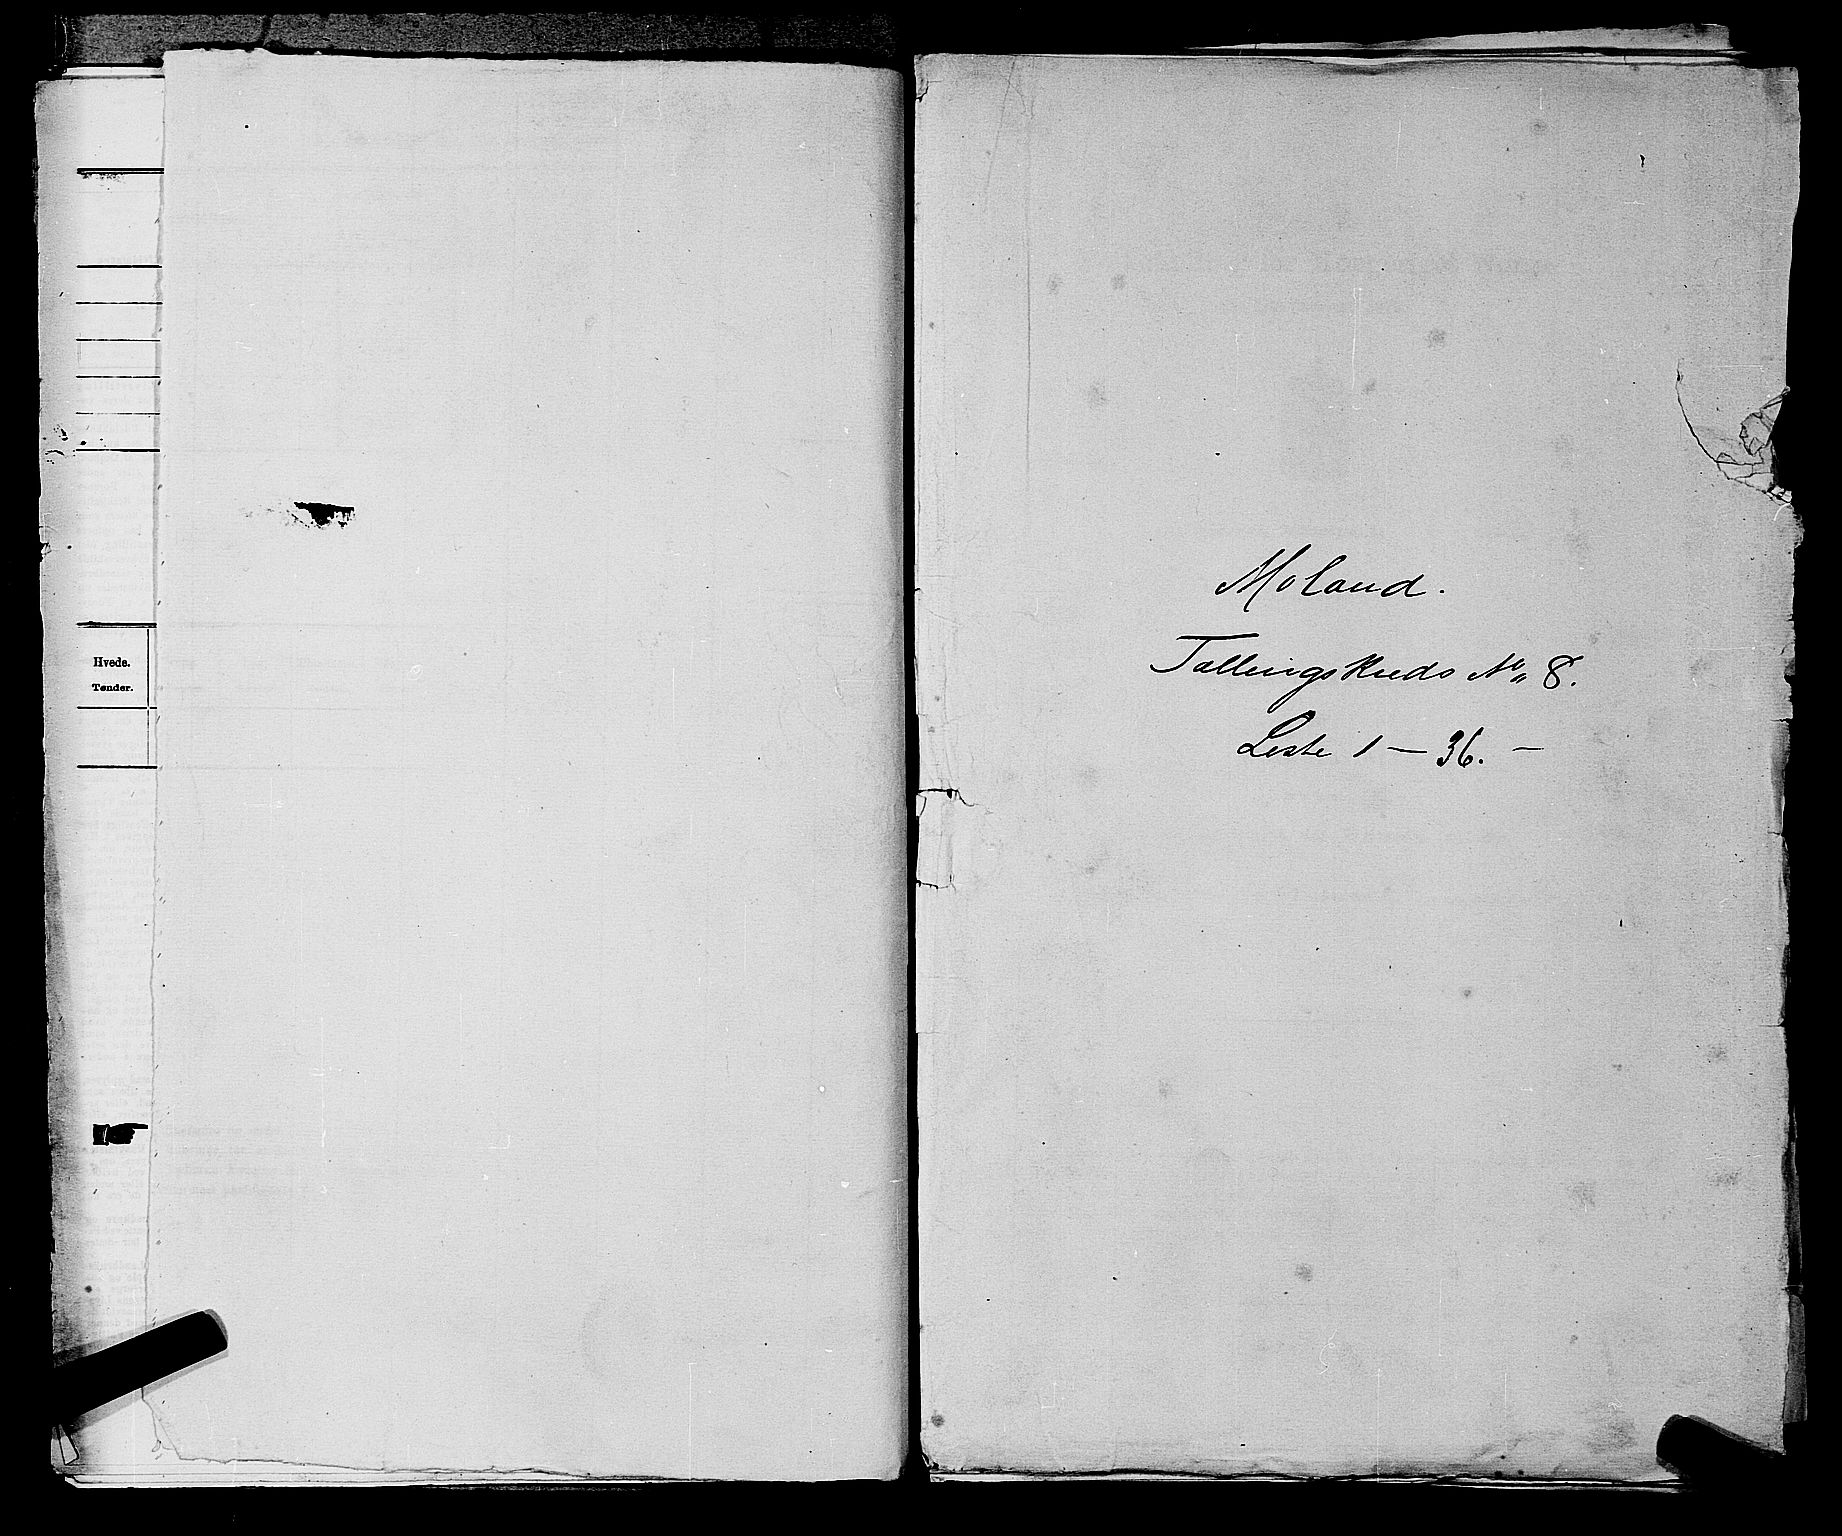 Hvede.
Tønder.
Moland.
Tællingskreds No 8.
Liste 1 — 36. —